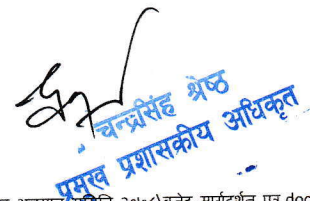 चन्द्रसिंह श्रेष्ठ
प्रमुख प्रशासकीय अधिकृत
बजेट मार्गदर्शन पत्र.doc